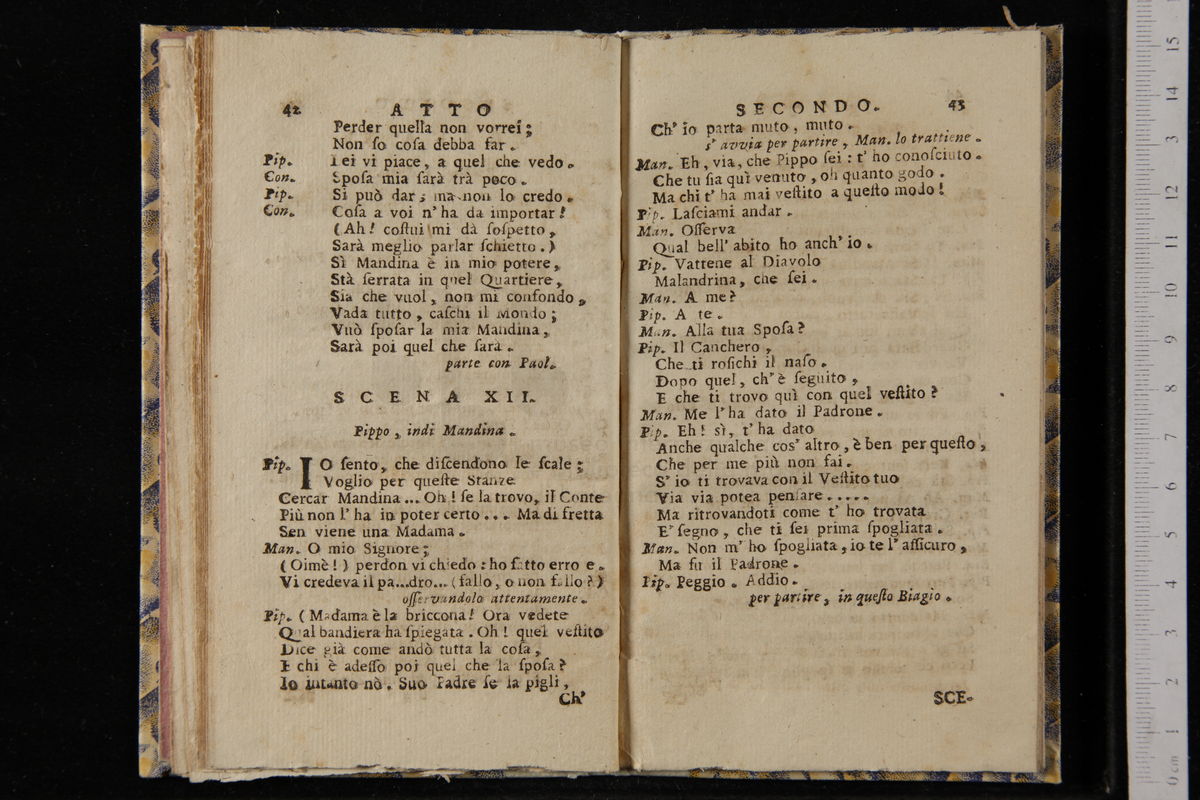 42 ATTO
Perder quella non vorrei;
Non ſo coſa debba far.
Pip. Lei vi piace, a quel che vedo.
Con. Spoſa mia ſarà trà poco.
Pip. Si può dar; ma non lo credo.
Con. Coſa a voi n' ha da importar!
(Ah! coſtui mi dà ſoſpetto,
Sarà meglio parlar ſchietto.)
Sì Mandina è in mio potere,
Stà ſerrata in quel Quartiere,
Sia che vuol, non mi confondo,
Vada tutto, caſchi il Mondo;
Vuò ſpoſar la mia Mandina,
Sarà poi quel che ſarà.
parte con Paol.
SCENA XII.
Pippo, indi Mandina.
Pip. IO ſento, che diſcendono le ſcale;
Voglio per queſte Stanze
Cercar Mandina... Oh! ſe la trovo, il Conte
Più non l' ha in poter certo... Ma di fretta
Sen viene una Madama.
Man. O mio Signore;
(Oimè!) perdon vi chiedo: ho fatto erro e.
Vi credeva il pa...dro... (fallo, o non fallo?)
oſſervandolo attentamente.
Pip. (Madama è la briccona! Ora vedete
Qual bandiera ha ſpiegata. Oh! quel veſtito
Dice già come andò tutta la coſa,
E chi è adeſſo poi quel che la ſpoſa?
Io intanto nò. Suo Padre ſe la pigli,
Ch'
SECONDO. 43
Ch' io parta muto, muto.
s' avvia per partire, Man. lo trattiene.
Man. Eh, via, che Pippo ſei: t' ho conoſciuto.
Che tu ſia quì venuto, oh quanto godo.
Ma chi t' ha mai veſtito a queſto modo!
Pip. Laſciami andar.
Man. Oſſerva
Qual bell' abito ho anch' io.
Pip. Vattene al Diavolo
Malandrina, che ſei.
Man. A me?
Pip. A te.
Man. Alla tua Spoſa?
Pip. Il Canchero,
Che ti roſichi il naſo.
Dopo quel, ch' è ſeguito,
E che ti trovo quì con quel veſtito?
Man. Me l' ha dato il Padrone.
Pip. Eh! sì, t' ha dato
Anche qualche cos' altro, è ben per queſto,
Che per me più non fai.
S' io ti trovava con il Veſtito tuo
Via via potea penſare.....
Ma ritrovandoti come t' ho trovata
E' ſegno, che ti ſei prima ſpogliata.
Man. Non m' ho ſpogliata, io te l' aſſicuro,
Ma fu il Padrone.
Pip. Peggio. Addio.
per partire, in queſto Biagio.
SCE-
0 cm 1 2 3 4 5 6 7 8 9 10 11 12 13 14 15